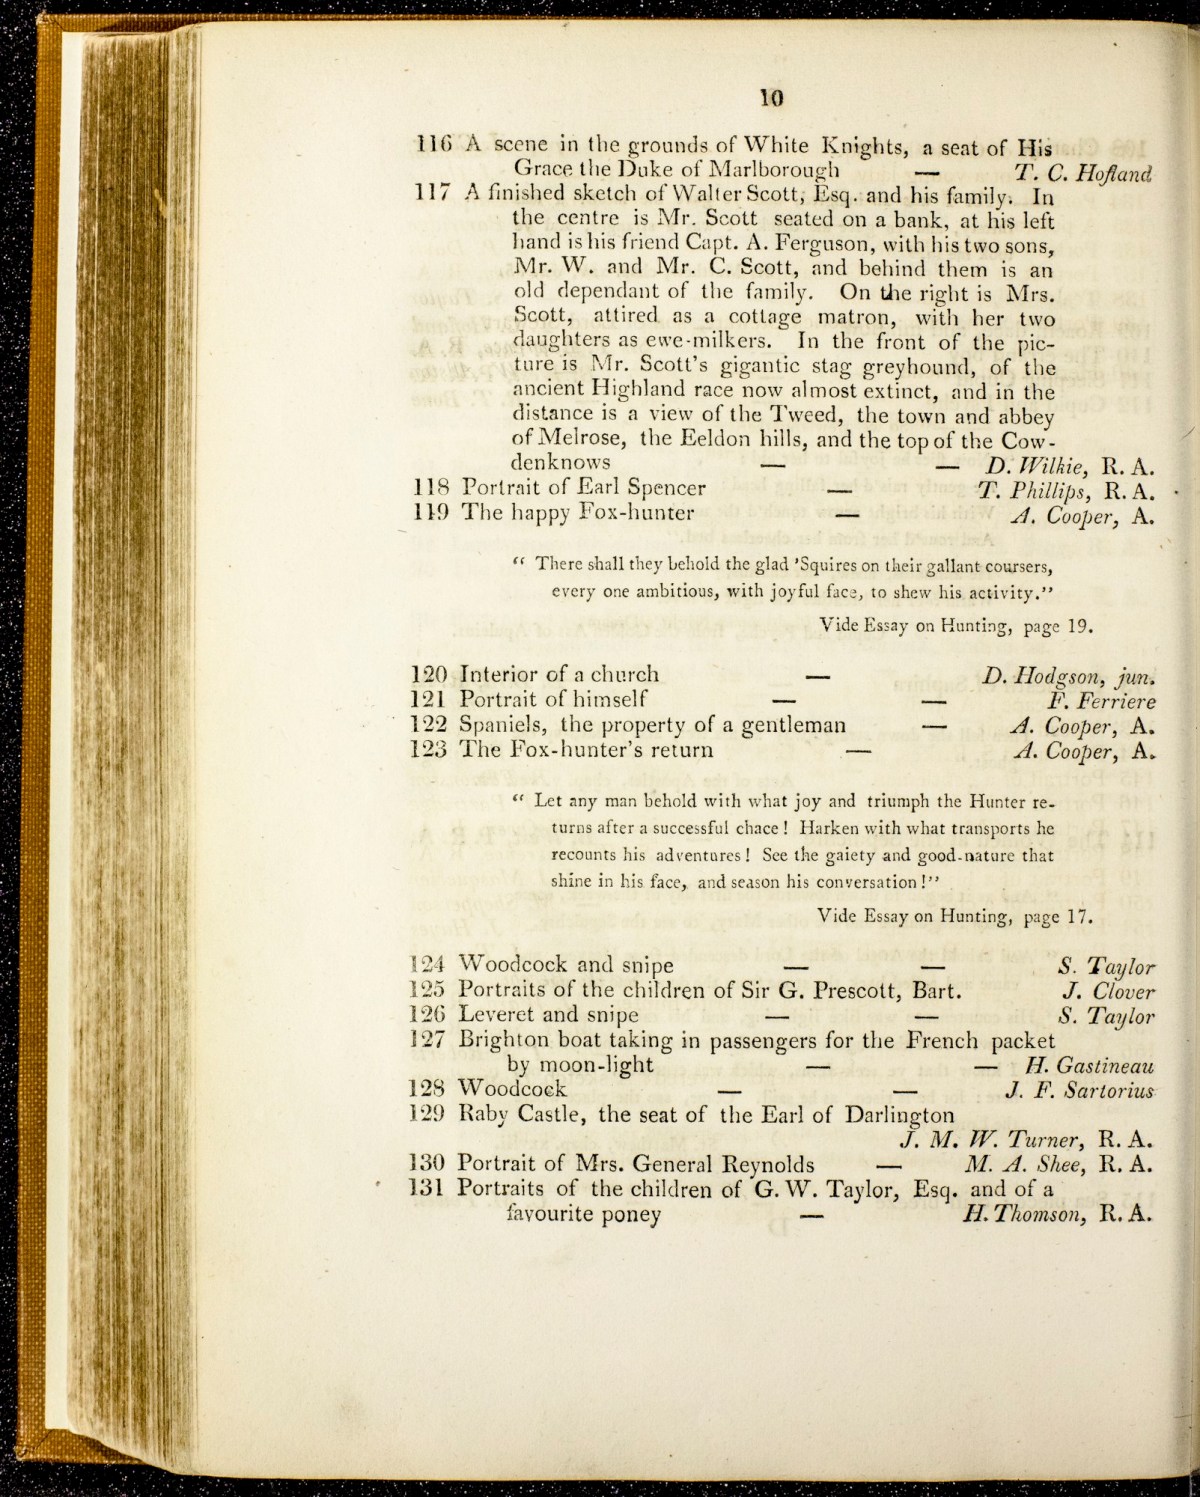 10
116 A scene in the grounds of White Knights, a seat of His
Grace the Duke of Marlborough — T. C. Hofland
117 A finished sketch of Walter Scott, Esq. and his family. In
the centre is Mr. Scott seated on a bank, at his left
hand is his friend Capt. A. Ferguson, with his two sons,
Mr. W. and Mr. C. Scott, and behind them is an
old dependant of the family. On the right is Mrs.
Scott, attired as a cottage matron, with her two
daughters as ewe-milkers. In the front of the pic-
ture is Mr. Scott's gigantic stag greyhound, of the
ancient Highland race now almost extinct, and in the
distance is a view of the Tweed, the town and abbey
of Melrose, the Eeldon hills, and the top of the Cow-
denknows — — D. Wilkie, R. A.
118 Portrait of Earl Spencer — T. Phillips, R. A.
119 The happy Fox-hunter — A. Cooper, A.
“ There shall they behold the glad 'Squires on their gallant coursers,
every one ambitious, with joyful face, to shew his activity.”
Vide Essay on Hunting, page 19.
120 Interior of a church — D. Hodgson, jun.
121 Portrait of himself — — F. Ferriere
122 Spaniels, the property of a gentleman — A. Cooper, A.
123 The Fox-hunter's return — A. Cooper, A.
“ Let any man behold with what joy and triumph the Hunter re-
turns after a successful chace ! Harken with what transports he
recounts his adventures ! See the gaiety and good-nature that
shine in his face, and season his conversation !”
Vide Essay on Hunting, page 17.
124 Woodcock and snipe — — S. Taylor
125 Portraits of the children of Sir G. Prescott, Bart. J. Clover
126 Leveret and snipe — — S. Taylor
127 Brighton boat taking in passengers for the French packet
by moon-light — — H. Gastineau
128 Woodcock — — J. F. Sartorius
129 Raby Castle, the seat of the Earl of Darlington
J. M. W. Turner, R. A.
130 Portrait of Mrs. General Reynolds — M. A. Shee, R. A.
131 Portraits of the children of G. W. Taylor, Esq. and of a
favourite poney — H. Thomson, R. A.